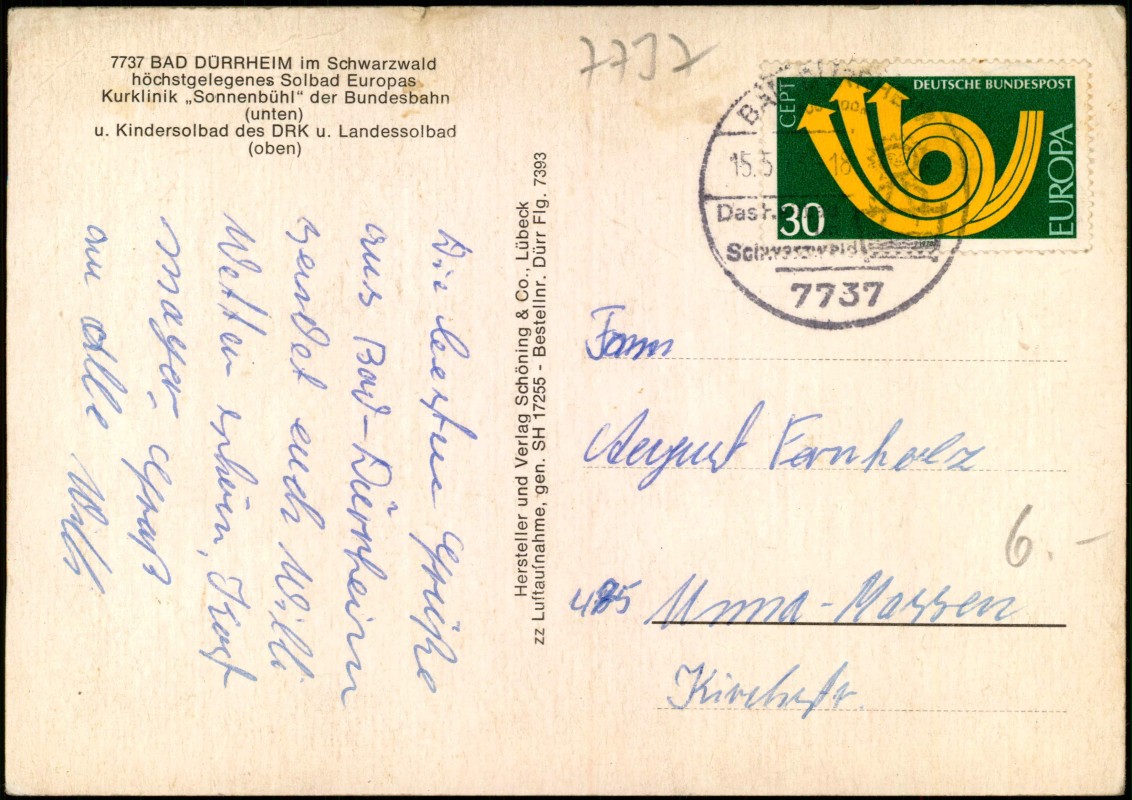 7737 BAD DÜRRHEIM im Schwarzwald
höchstgelegenes Solbad Europas
Kurklinik „Sonnenbühl“ der Bundesbahn
(unten)
u. Kindersolbad des DRK u. Landessolbad
(oben)
7737
DEUTSCHE BUNDESPOST
CEPT
30
EUROPA
15.5
Schwarzwald
7737
Die besten Grüße
aus Bad-Dürrheim
sendet euch Willi
Wetter schön, Kurf
mager, Gruß
an alle Willi
Hersteller und Verlag Schöning & Co., Lübeck
zz Luftaufnahme, gen. SH 17255 - Bestellnr. Dürr Flg. 7393
Fam
August Fernholz
6.-
475 Unna-Massen
Kirchstr.